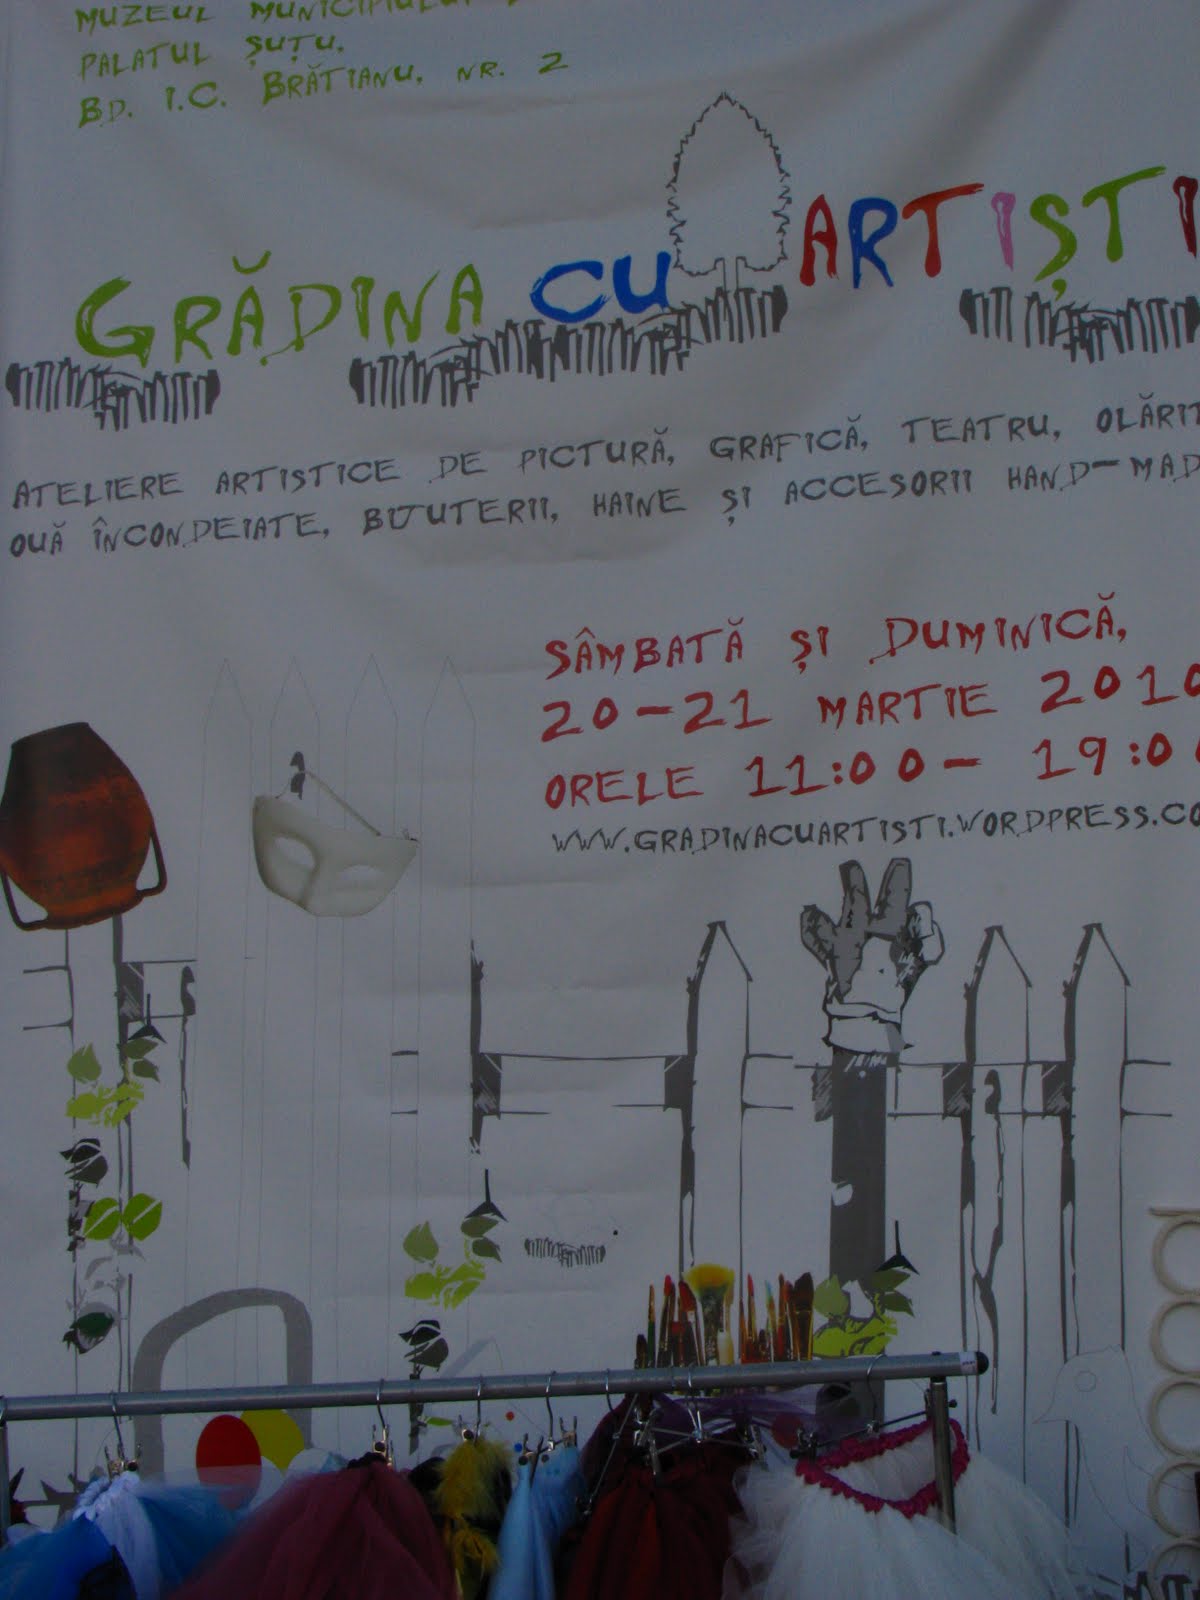 MUZEUL
PALATUL ȘUȚU,
BD. I.C. BRĂTIANU, NR. 2
GRĂDINA CU ARTIȘTI
ATELIERE ARTISTICE DE PICTURĂ, GRAFICĂ, TEATRU, OLĂRIT
OUĂ ÎNCONDEIATE, BIJUTERII, HAINE ȘI ACCESORII HAND-MAD
SÂMBATĂ ȘI DUMINICĂ,
20-21 MARTIE 2010
ORELE 11:00- 19:00
WWW.GRADINACUARTISTI.WORDPRESS.CO